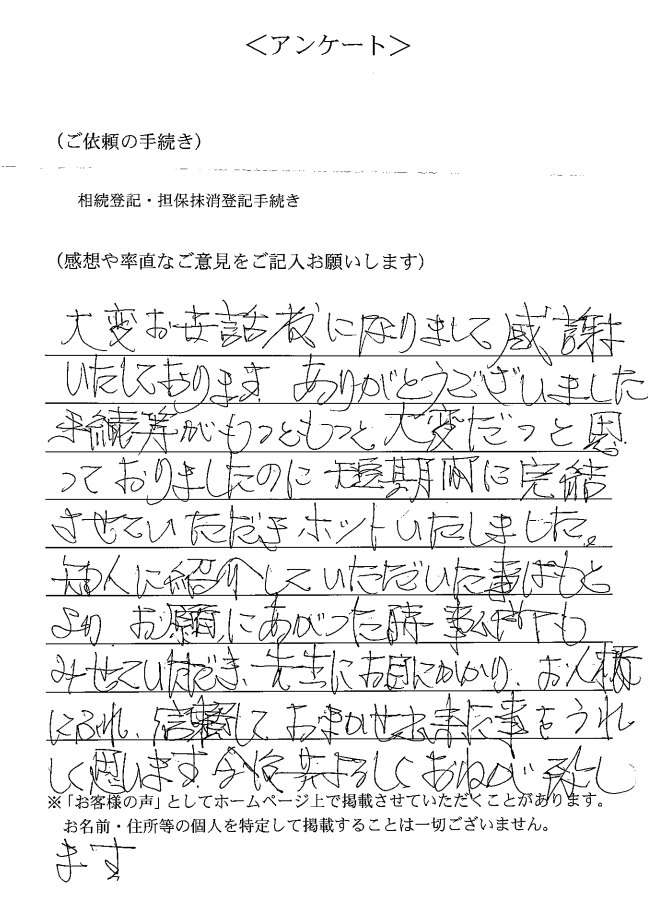 ＜アンケート＞
（ご依頼の手続き）
相続登記・担保抹消登記手続き
（感想や率直なご意見をご記入お願いします）
大変お世話様になりまして感謝
いたしております ありがとうございました
手続等がもっともっと大変だっと思
っておりましたのに短期間に完結
させていただきホットいたしました。
知人に紹介していただいた事はもと
より お願いにあがった時 事ム所下も
みせていただき、先生にお目にかかり、お人様
にふれ、信頼して おまかせ出来た事をうれ
しく思います 今後共よろしくおねがい致し
※「お客様の声」としてホームページ上で掲載させていただくことがあります。
お名前・住所等の個人を特定して掲載することは一切ございません。
ます